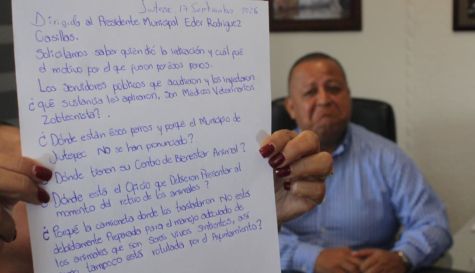 Jiutepec 17 Septiembre 2026
Dirigido al Presidente Municipal Eder Rodriguez
Casillas.
Solicitamos saber quien dio la indicación y cuál fué
el motivo por el que fueron por esos perros.
Los Servidores Públicos que acudieron y los inyectaron
¿qué sustancia les aplicaron, son Médicos Veterinarios
Zootecnista?.
¿Dónde están ésos perros y porqué el Municipio de
Jiutepec NO se han pronunciado?
¿Dónde tienen su Centro de Bienestar Animal?
¿Dónde está el Oficio que Debieron Presentar al
momento del retiro de los animales?
¿Porqué la camioneta donde los trasladaron No está
debidamente Preparada para el manejo adecuado de
los animales que son seres vivos sintientes, así
tampoco está rotulada por el Ayuntamiento?